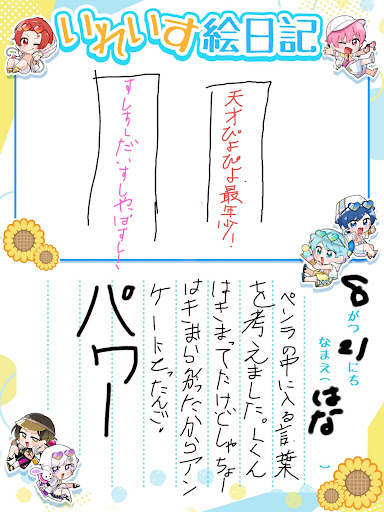 いれいす絵日記
天才ぴよぴよ最年少!
すしすしだいすしやっぱすしー!
8がつ21にち
なまえ(はな)
ペンラの中に入る言葉
を考えました。Lくん
はきまってたけどしゃちょー
はきまらなかったからアン
ケートとったんご。
パワー